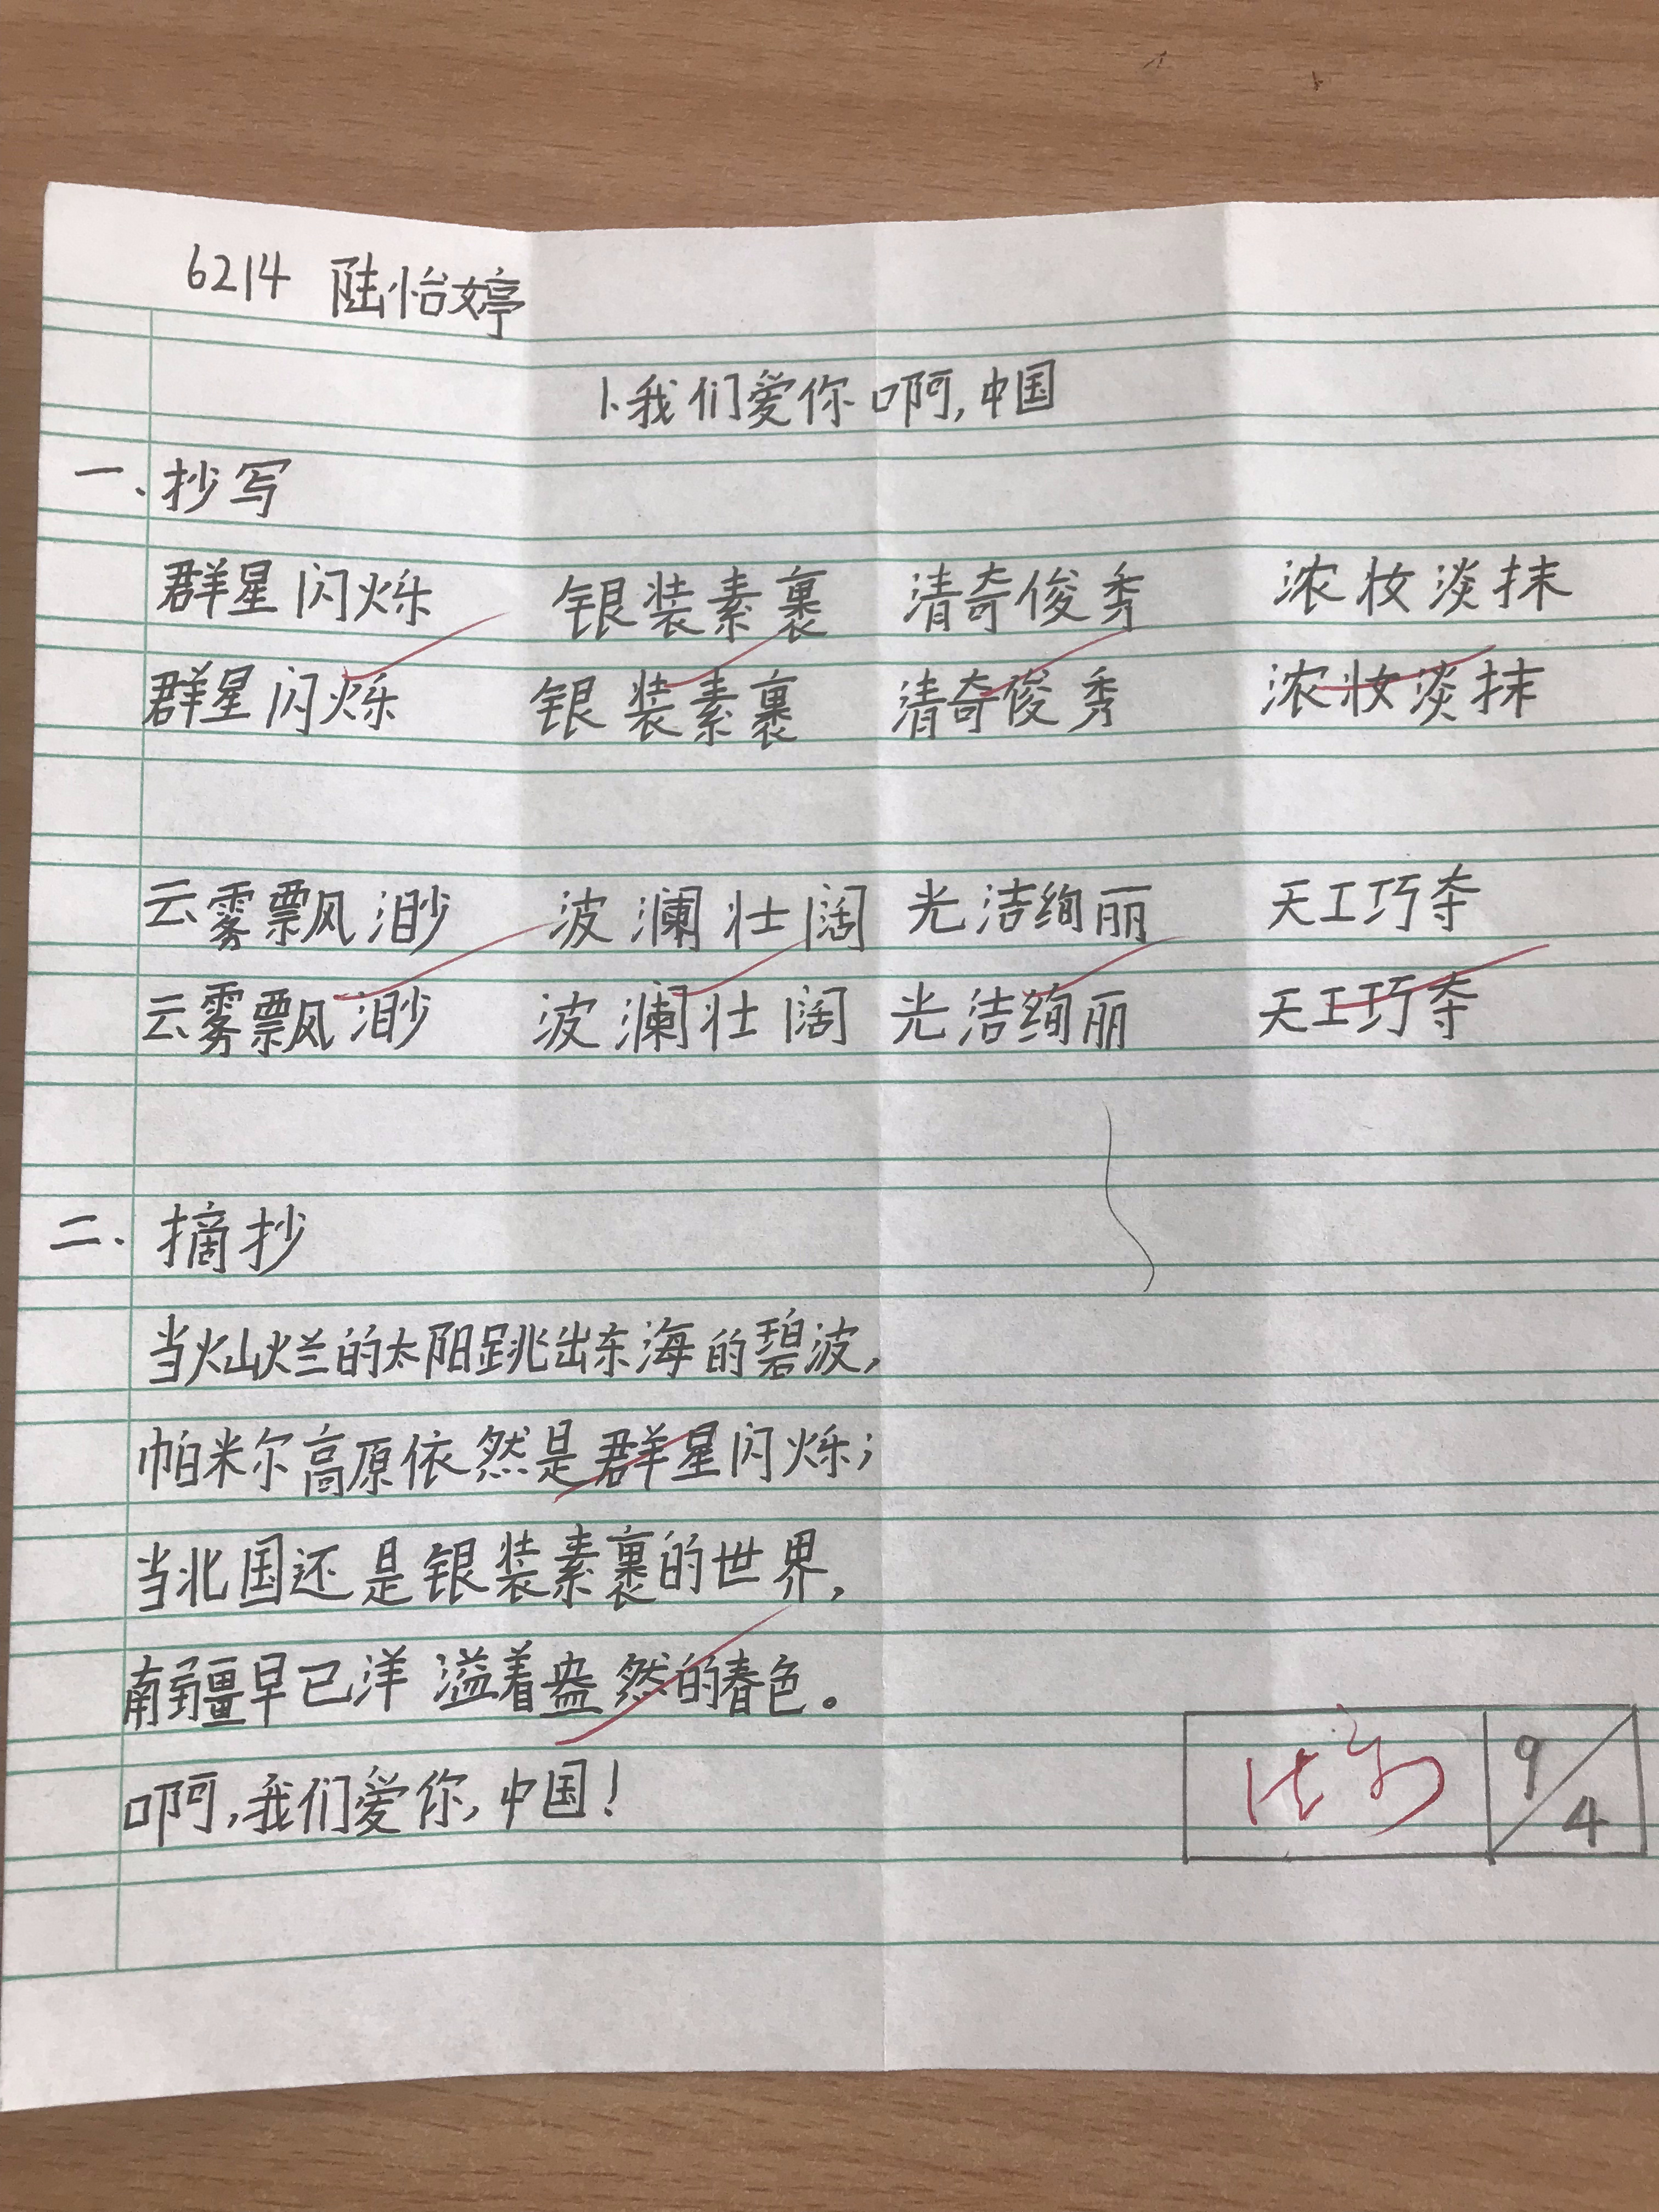 6214 陆怡婷
1.我们爱你啊,中国
一、抄写
群星闪烁 银装素裹 清奇俊秀 浓妆淡抹
群星闪烁 银装素裹 清奇俊秀 浓妆淡抹
云雾飘渺 波澜壮阔 光洁绚丽 天工巧夺
云雾飘渺 波澜壮阔 光洁绚丽 天工巧夺
二、摘抄
当灿烂的太阳跳出东海的碧波,
帕米尔高原依然是群星闪烁;
当北国还是银装素裹的世界,
南疆早已洋溢着盎然的春色。
啊,我们爱你,中国!
优 9/4